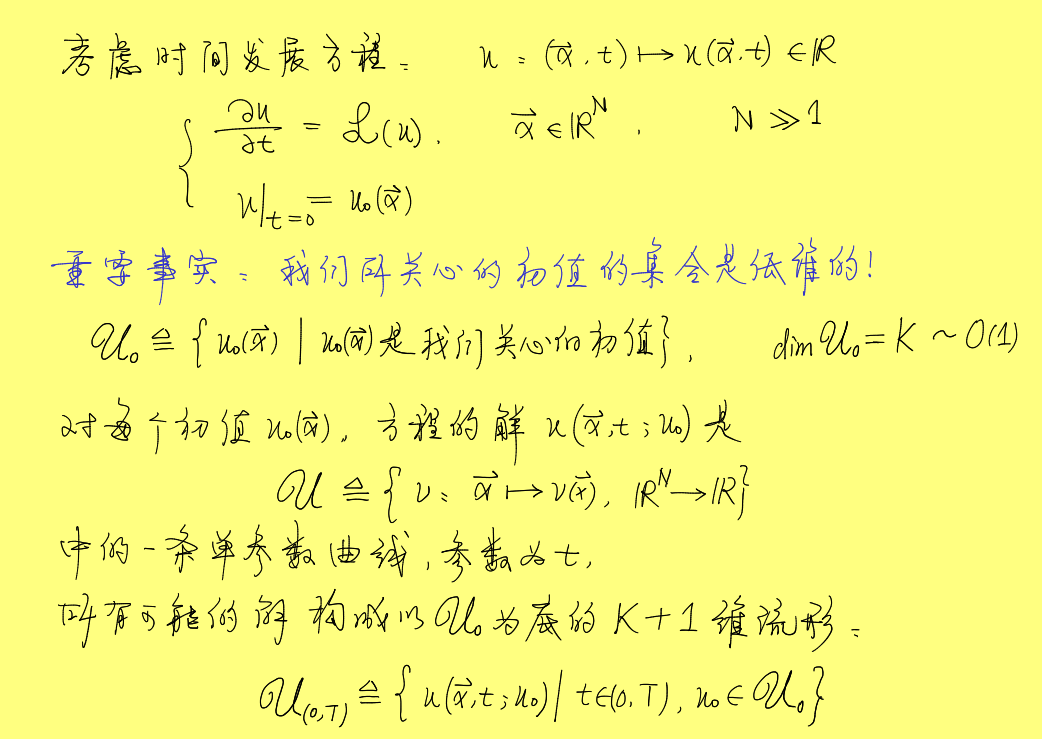 考虑时间发展方程: u : (x⃗, t) ↦ u(x⃗, t) ∈ ℝ
{ ∂u/∂t = ℒ(u), x⃗ ∈ ℝ^N, N ≫ 1
u|_{t=0} = u₀(x⃗)
重要事实: 我们所关心的初值的集合是低维的!
𝒰₀ ≙ { u₀(x⃗) | u₀(x⃗)是我们关心的初值 }, dim 𝒰₀ = K ~ O(1)
对每个初值 u₀(x⃗), 方程的解 u(x⃗, t; u₀) 是
𝒰 ≙ { v : x⃗ ↦ v(x⃗), ℝ^N → ℝ }
中的一条单参数曲线, 参数为 t,
所有可能的解构成以 𝒰₀ 为底的 K+1 维流形:
𝒰_{(0,T)} ≙ { u(x⃗, t; u₀) | t∈(0,T), u₀ ∈ 𝒰₀ }